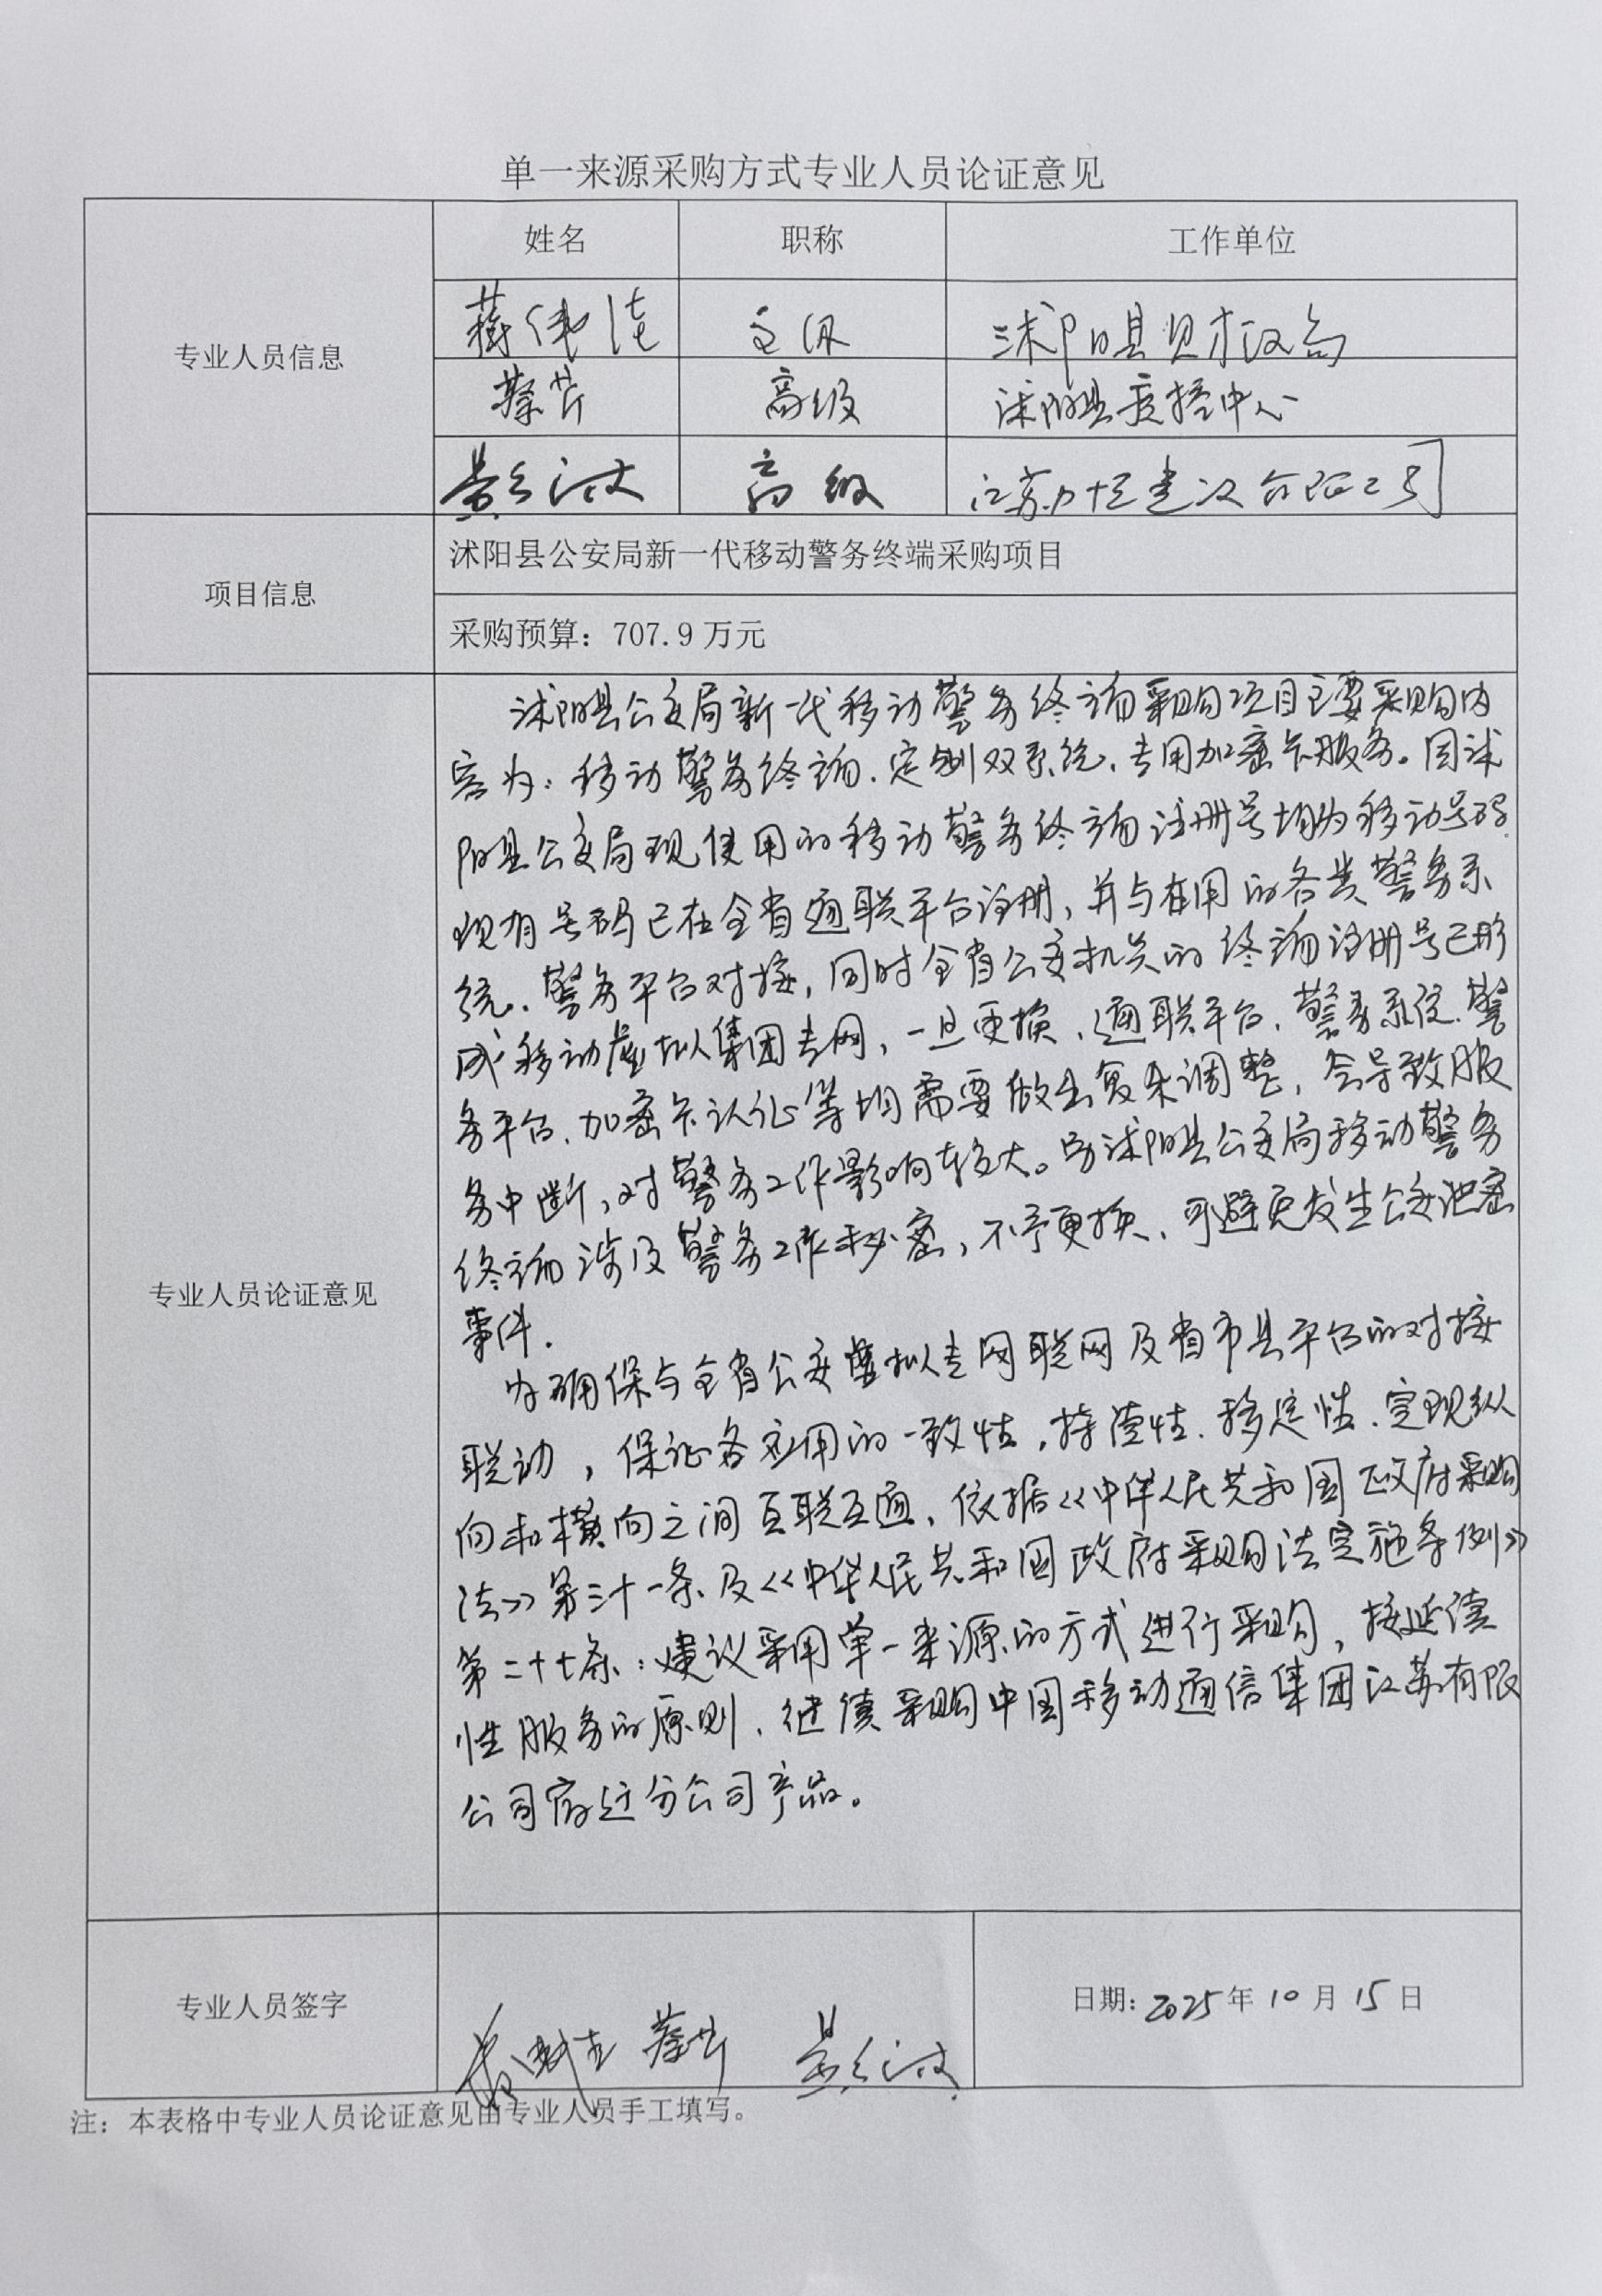 单一来源采购方式专业人员论证意见
专业人员信息 姓名 职称 工作单位
蔡芹 高级 沭阳县疫控中心
高级
项目信息
沭阳县公安局新一代移动警务终端采购项目
采购预算：707.9万元
专业人员论证意见
沭阳县公安局新一代移动警务终端采购项目主要采购内
容为：移动警务终端、定制双系统、专用加密卡服务。因沭
阳县公安局现使用的移动警务终端注册号均为移动号码，
现有号码已在全省通联平台注册，并与在用的各类警务系
统、警务平台对接，同时全省公安机关的终端注册号已形
成移动虚拟集团专网，一旦更换，通联平台、警务系统、警
务平台、加密卡认证等均需要做出复杂调整，会导致服
务中断，对警务工作影响较大。另沭阳县公安局移动警务
终端涉及警务工作秘密，不予更换，可避免发生公安泄密
事件.
为确保与全省公安虚拟专网联网及省市县平台的对接
联动，保证各应用的一致性，持续性、稳定性、实现纵
向和横向之间互联互通，依据《中华人民共和国政府采购
法》第三十一条及《中华人民共和国政府采购法实施条例》
第二十七条：建议采用单一来源的方式进行采购，按延续
性服务的原则，继续采购中国移动通信集团江苏有限
公司宿迁分公司产品。
专业人员签字
蔡芹
日期：2025年10月15日
注：本表格中专业人员论证意见由专业人员手工填写。